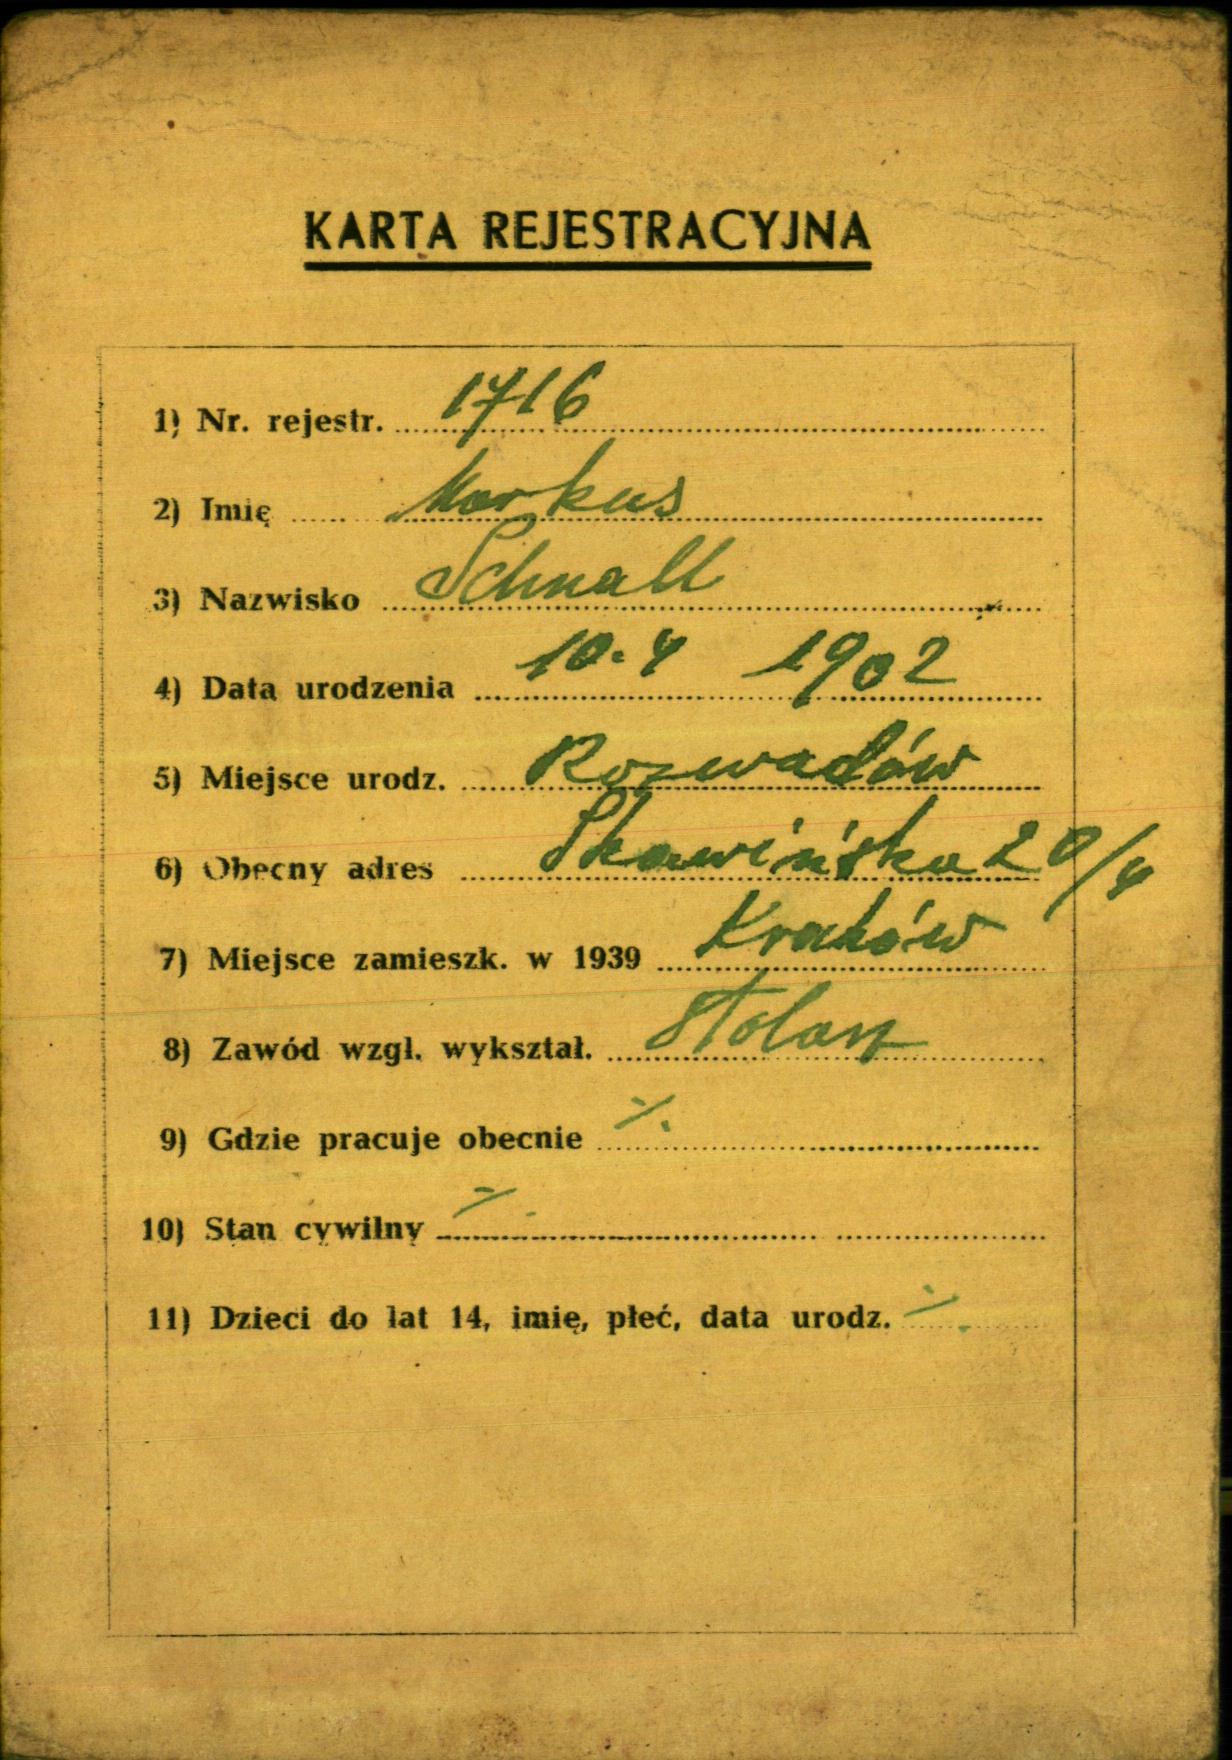 KARTA REJESTRACYJNA
1) Nr. rejestr. 1716
2) Imię Markus
3) Nazwisko Schnall
4) Data urodzenia 10.4 1902
5) Miejsce urodz. Rozwadów
6) Obecny adres Skawińska 20/4
7) Miejsce zamieszk. w 1939 Kraków
8) Zawód wzgl. wykształ. stolarz
9) Gdzie pracuje obecnie ./.
10) Stan cywilny ./.
11) Dzieci do lat 14, imię, płeć, data urodz. ./.